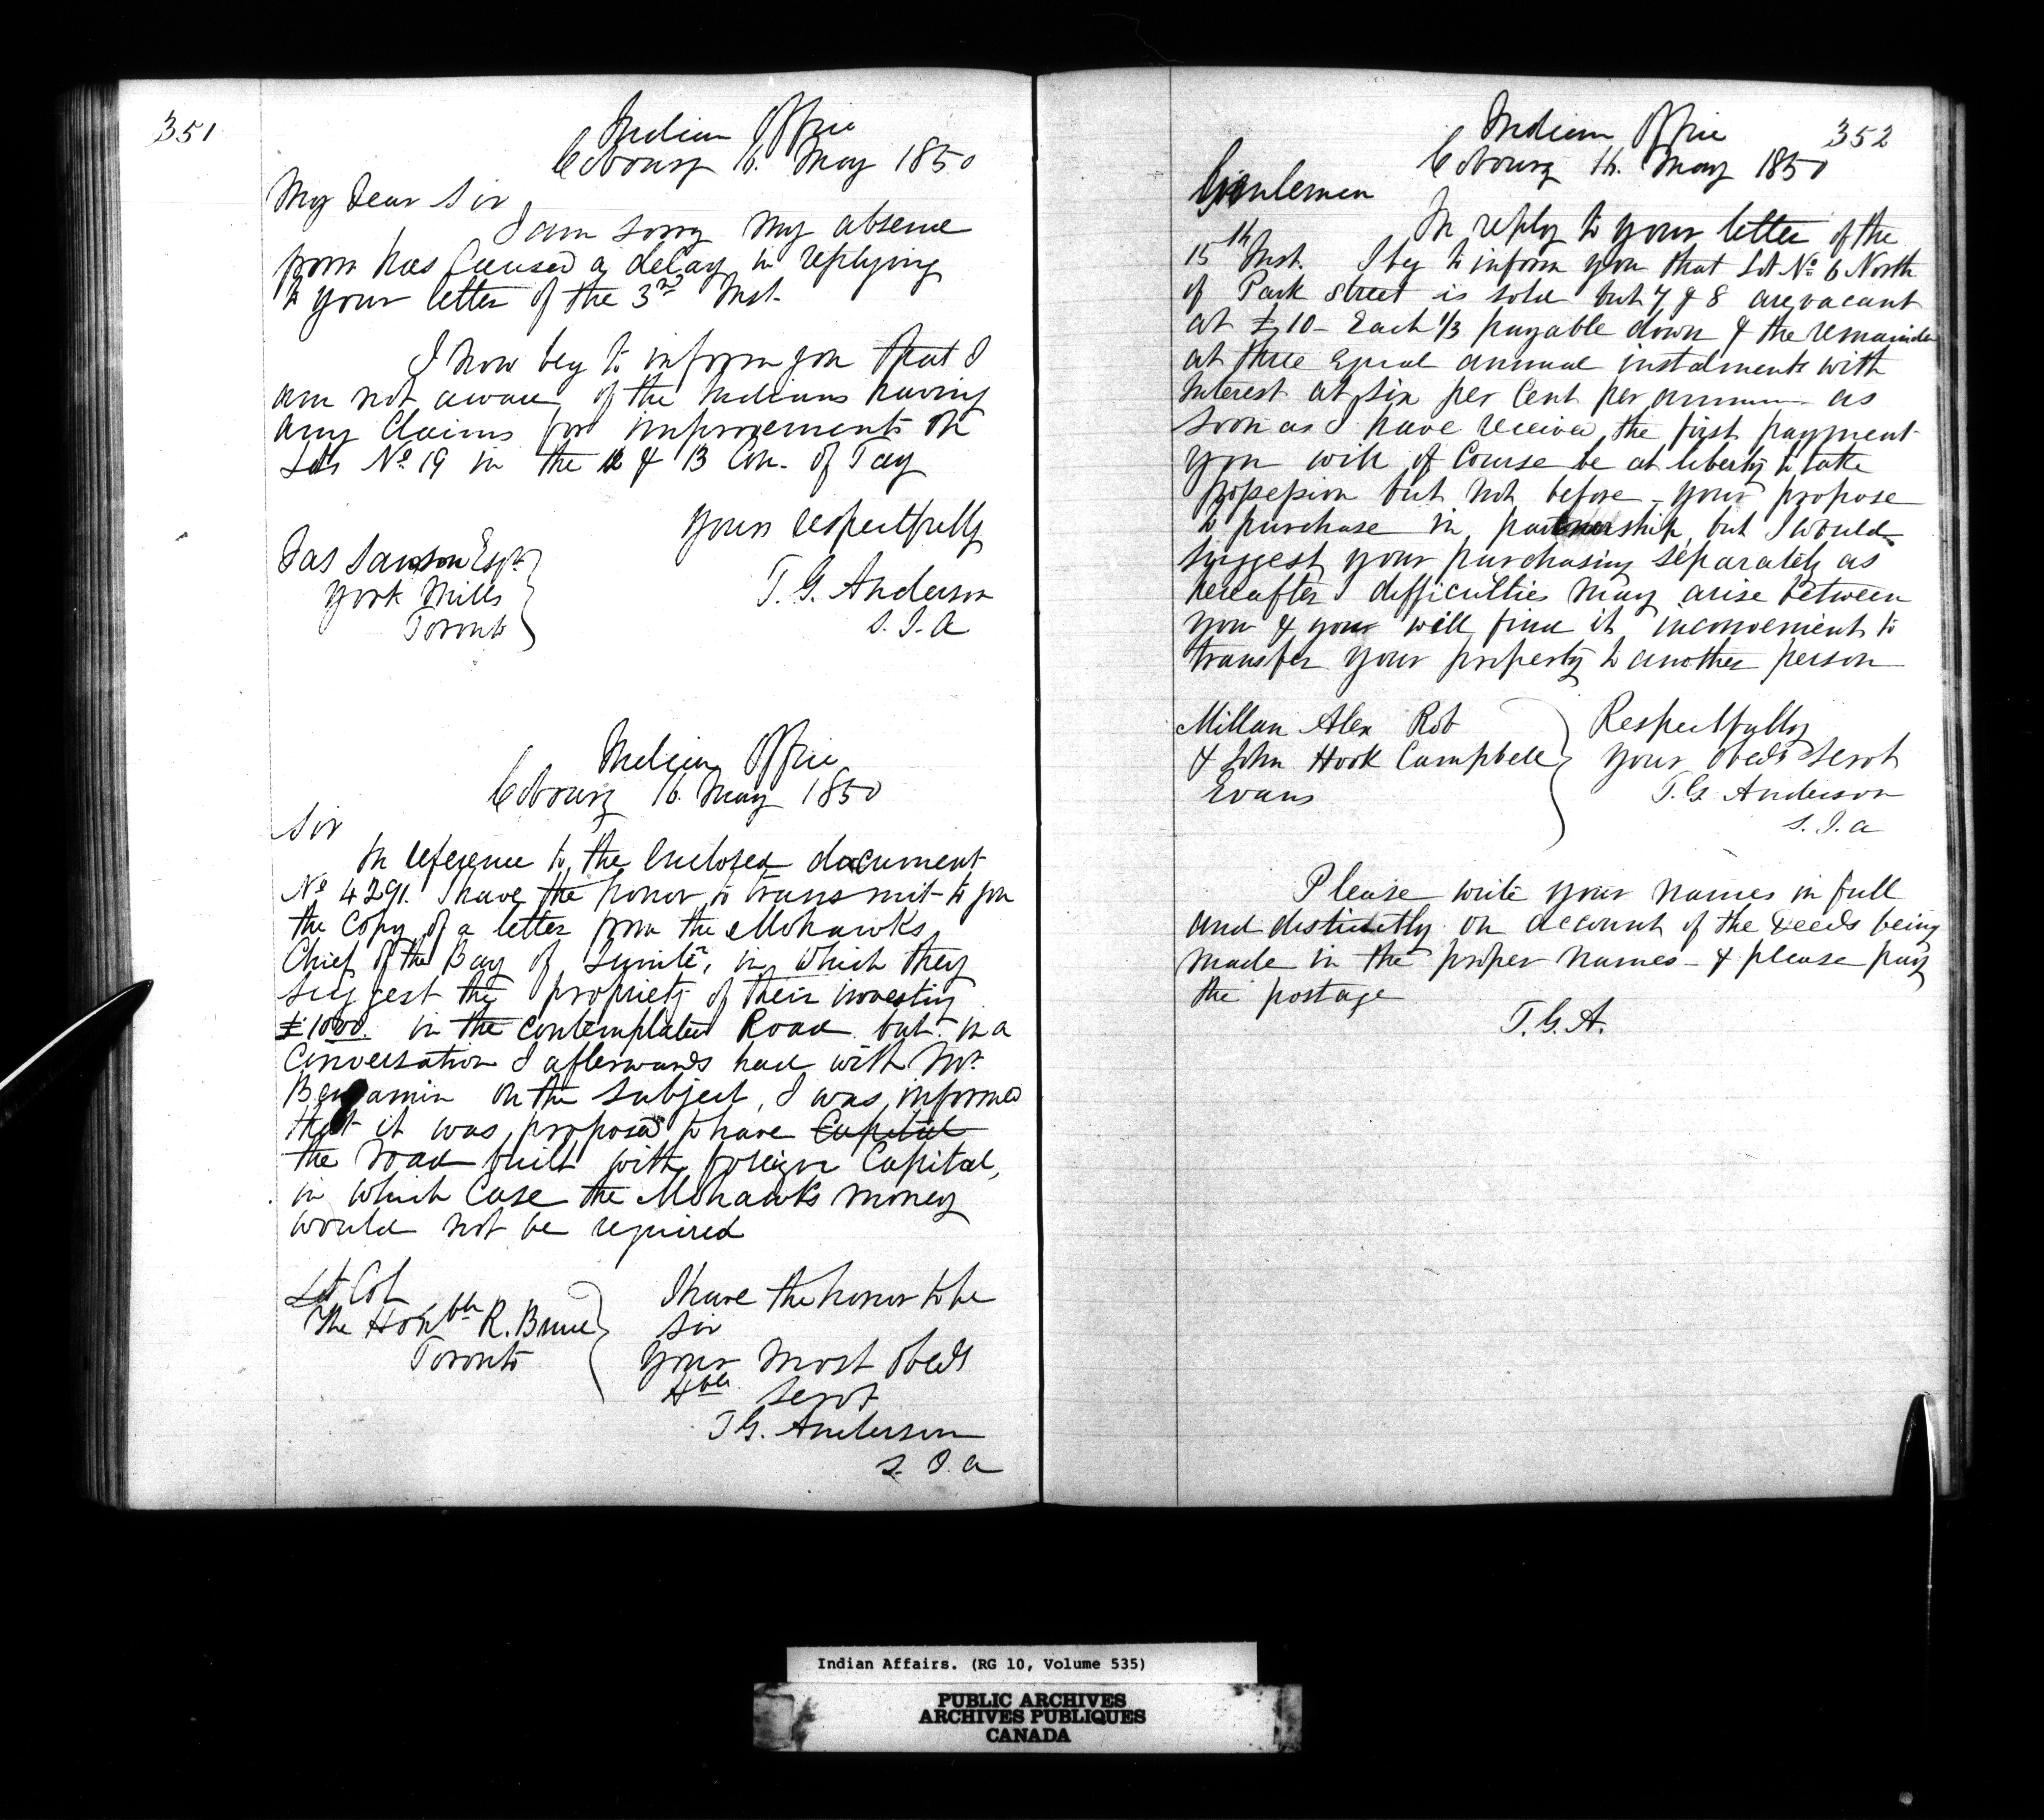 351
Indian Office
Cobourg 16. May 1850
My Dear Sir
I am sorry my absence
from has Caused a delay in replying
to your letter of the 3rd Inst.
I now beg to inform you that I
am not aware of the Indians having
any Claims for improvements on
Lots No 19 in the 12 & 13 Con. of Tay
Yours respectfully
T. G. Anderson
S. I. A
Jas Esqr
York Mills
Toronto
Indian Office
Cobourg 16. May 1850
Sir
In reference to the Enclosed document
No 4291. I have the honor to transmit to you
the Copy of a letter from the Mohawks
Chief of the Bay of Quinté, in which they
suggest the propriety of their investing
£1000. in the contemplated Road but in a
Conversation I afterwards had with Mr.
Benjamin on the subject, I was informed
that it was proposed to have Capital
the road built with foreign Capital,
in which Case the Mohawks money
would not be required
I have the honor to be
Sir
Your most obedt
Hble Servt
T G. Anderson
S. I. A
Lt Col
The Honble R. Bruce
Toronto
352
Indian Office
Cobourg 16. May 1850
Gentlemen
In reply to your letter of the
15th Inst. I beg to inform you that Lot No 6 North
of Park Street is sold but 7 & 8 are vacant
at £10 - Each 1/3 payable down & the remainder
at three Equal annual instalments with
Interest at six per Cent per annum - as
soon as I have received the first payment
you will of Course be at liberty to take
possession but not before - your propose
to purchase in partnership, but I would
suggest your purchasing separately as
hereafter difficulties may arise between
you & your will find it inconvenient to
transfer your property to another person
Respectfully
Your Obedt Servt
T. G. Anderson
S. I. A
Millan Alex Rob
& John Hook Campbell
Evans
Please write your names in full
and distinctly on account of the Deeds being
made in the proper names - & please pay
the postage
T. G. A.
Indian Affairs. (RG 10, Volume 535)
PUBLIC ARCHIVES
ARCHIVES PUBLIQUES
CANADA